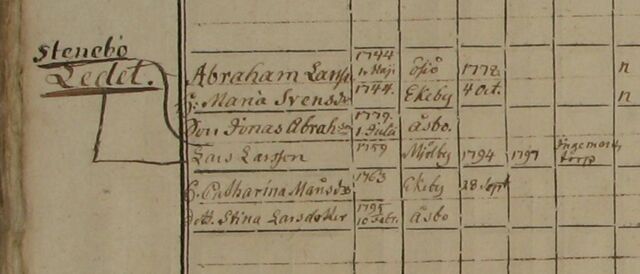 Stenebo
Ledet.
Abraham Larss 1744 1 Maji Åsbo 1772 n
H: Maria Svensd 1744. Ekeby 4 Oct. n
Son Jonas Abrah 1779. 1 Julii Åsbo.
Lars Larsson 1759 Mjölby 1794 1797 Ingemars torp
H. Catharina Månsd 1763 Ekeby 28 Sept
dott. Stina Larsdotter 1795 10 Febr. Åsbo